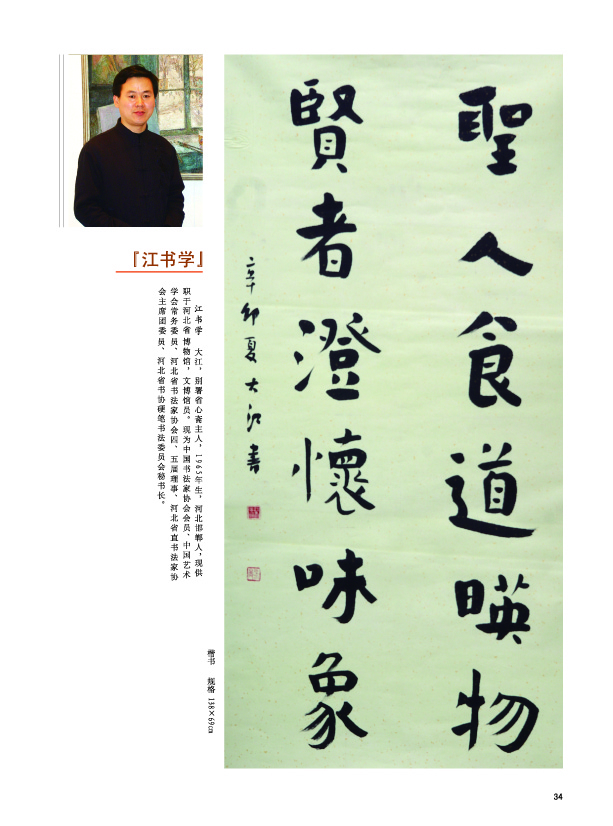 『江书学』
江书学 大江，别署省心斋主人，1965年生，河北邯郸人，现供
职于河北省博物馆，文博馆员。现为中国书法家协会会员、中国艺术
学会常务委员、河北省书法家协会四、五届理事、河北省直书法家协
会主席团委员、河北省书协硬笔书法委员会秘书长。
聖人食道暎物
賢者澄懷味象
辛卯夏大江書
楷书 规格 138×69cm
34